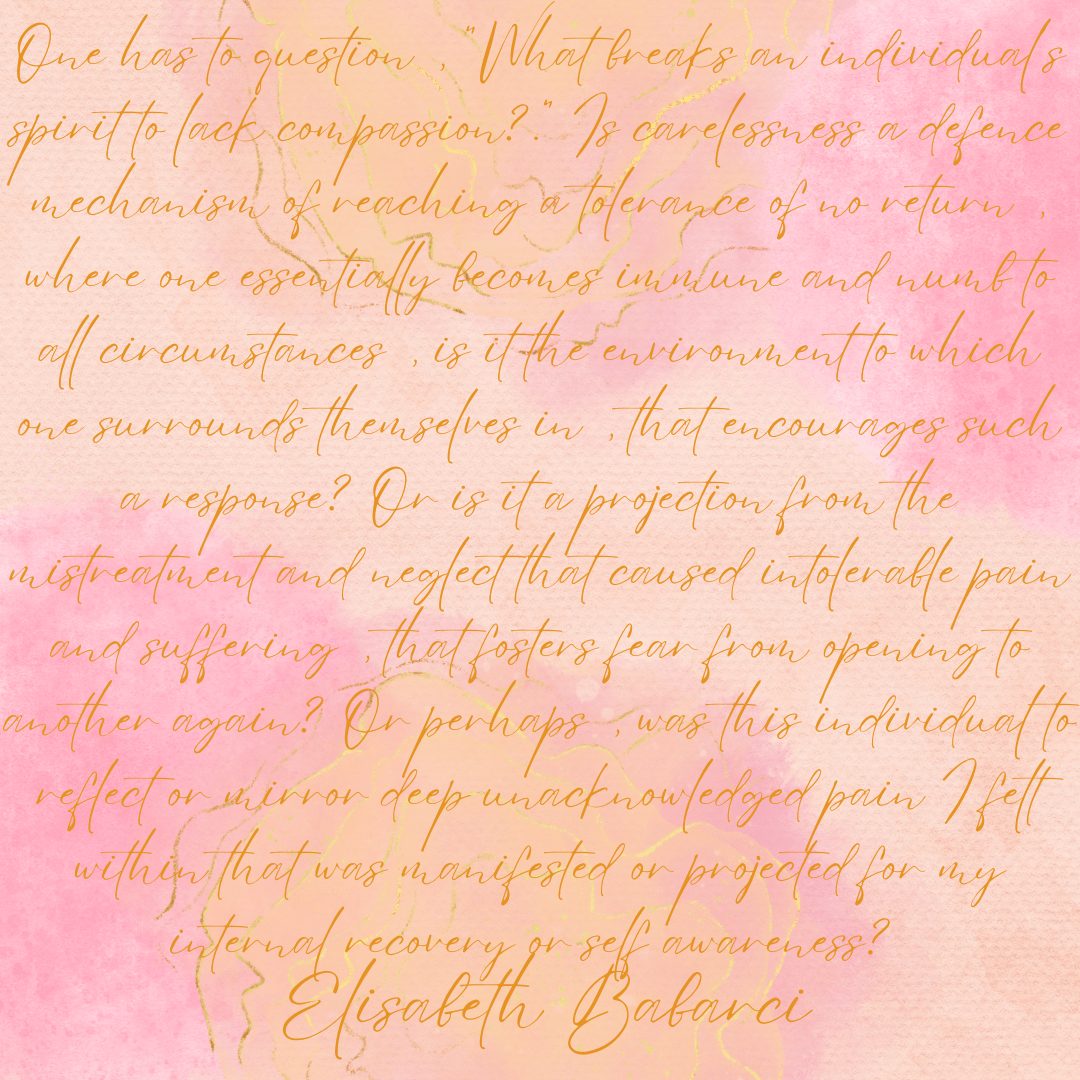 One has to question , "What breaks an individual's
spirit to lack compassion?." Is carelessness a defence
mechanism of reaching a tolerance of no return ,
where one essentially becomes immune and numb to
all circumstances , is it the environment to which
one surrounds themselves in , that encourages such
a response? Or is it a projection from the
mistreatment and neglect that caused intolerable pain
and suffering , that fosters fear from opening to
another again? Or perhaps , was this individual to
reflect or mirror deep unacknowledged pain I felt
within that was manifested or projected for my
internal recovery or self awareness?
Elisabeth Babarci